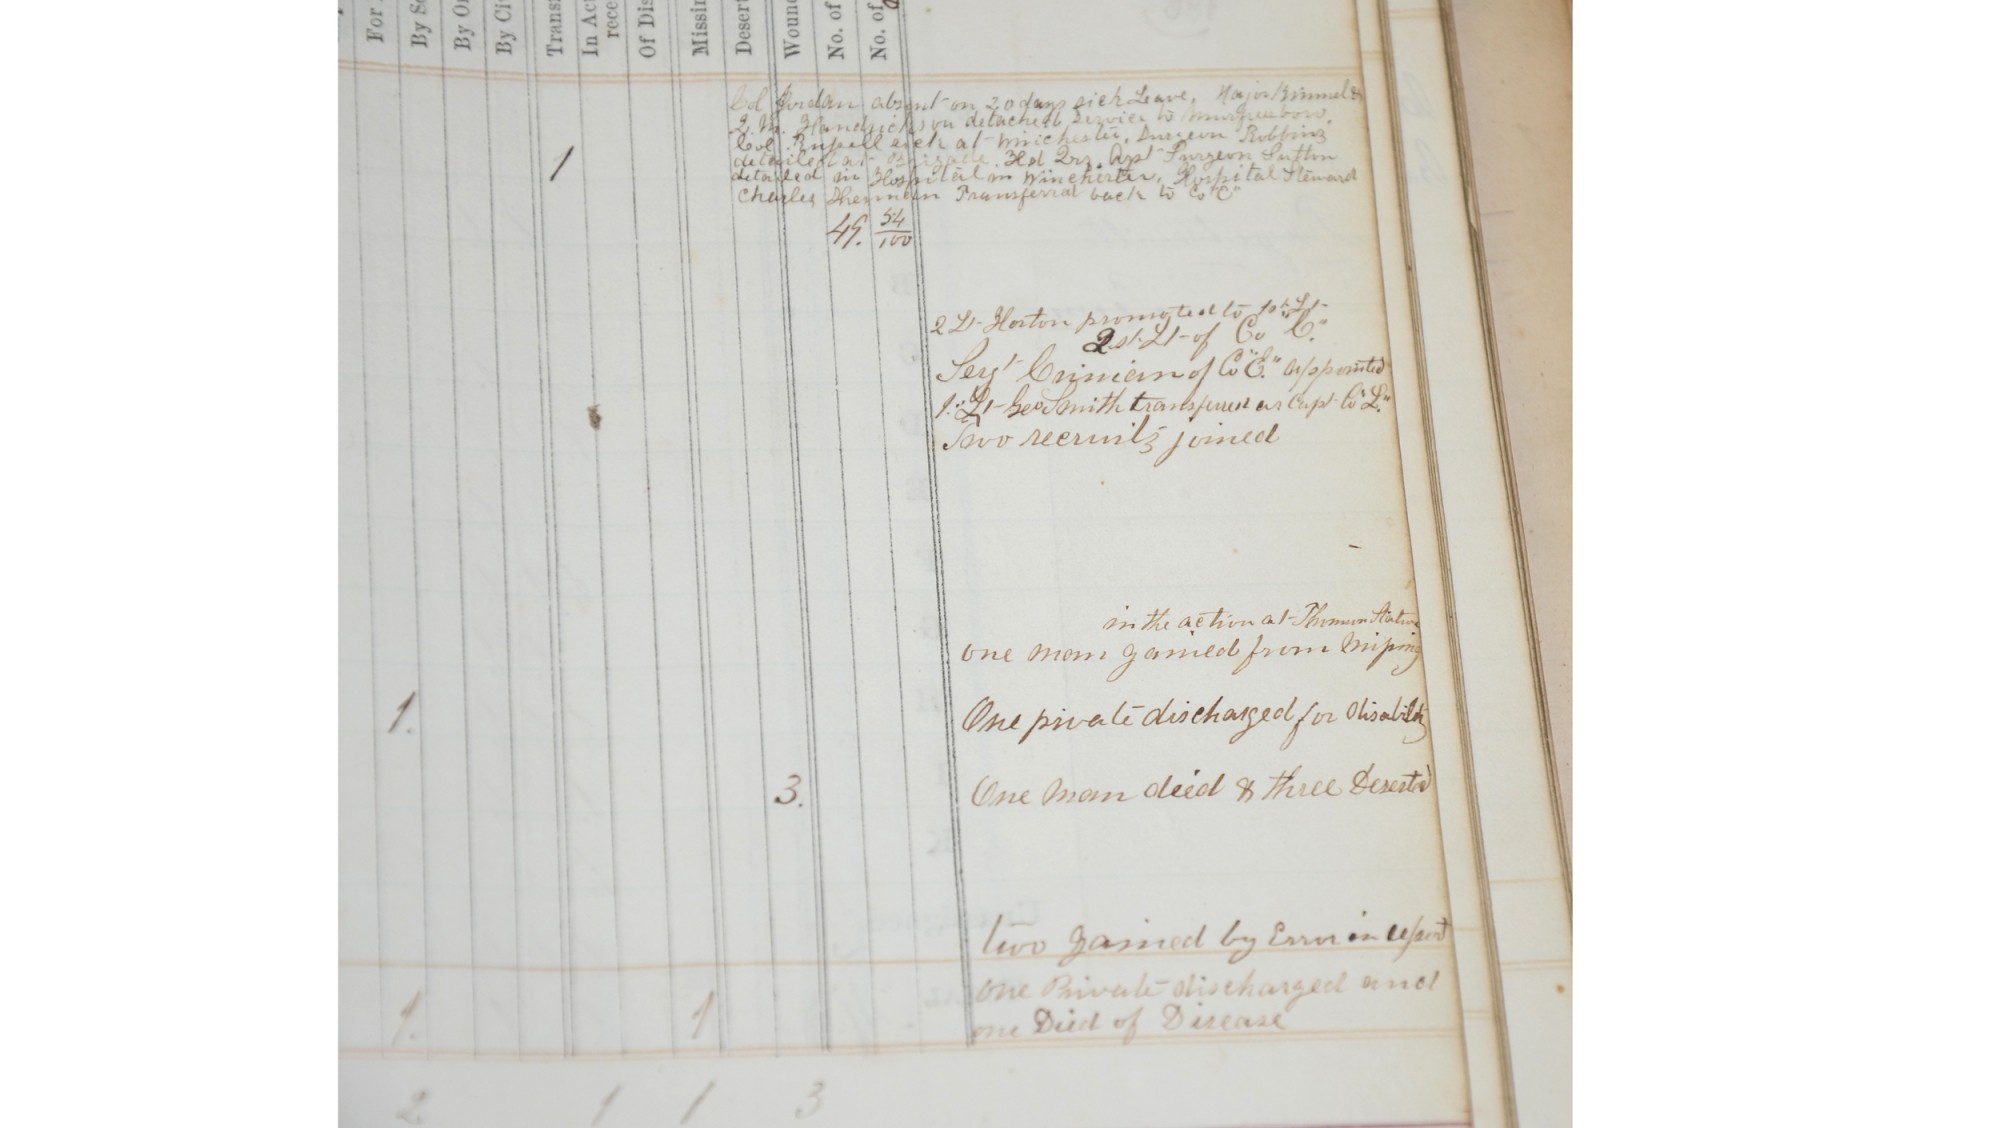 For
By Se
By Or
By Ci
Transf
In Act
rece
Of Dis
Missin
Desert
Wound
No. of
No. of
Col Jordan absent on 20 days sick Leave, Major Kimmel &
Q.M. Handricks on detached Service to Murfreesboro,
Col. Russell sick at Winchester, Surgeon Robbins
detailed at Brigade Hd Qrs, Asst Surgeon Sutton
detailed in Hospital in Winchester, Hospital Steward
Charles Transferred back to Co "C"
1
49. 54/100
2 Lt Horton promoted to 1st Lt
2 st Lt of Co "C."
Sergt of Co "E." appointed
1st Lt Geo Smith transferred as Capt Co "L."
Two recruits joined
in the action at Thomson Station
one man gained from Missing
1. One private discharged for disability
3. One man deied & three Deserted
two gained by Error in report
one Private discharged and
1. 1 one Died of Disease
2 1 1 3